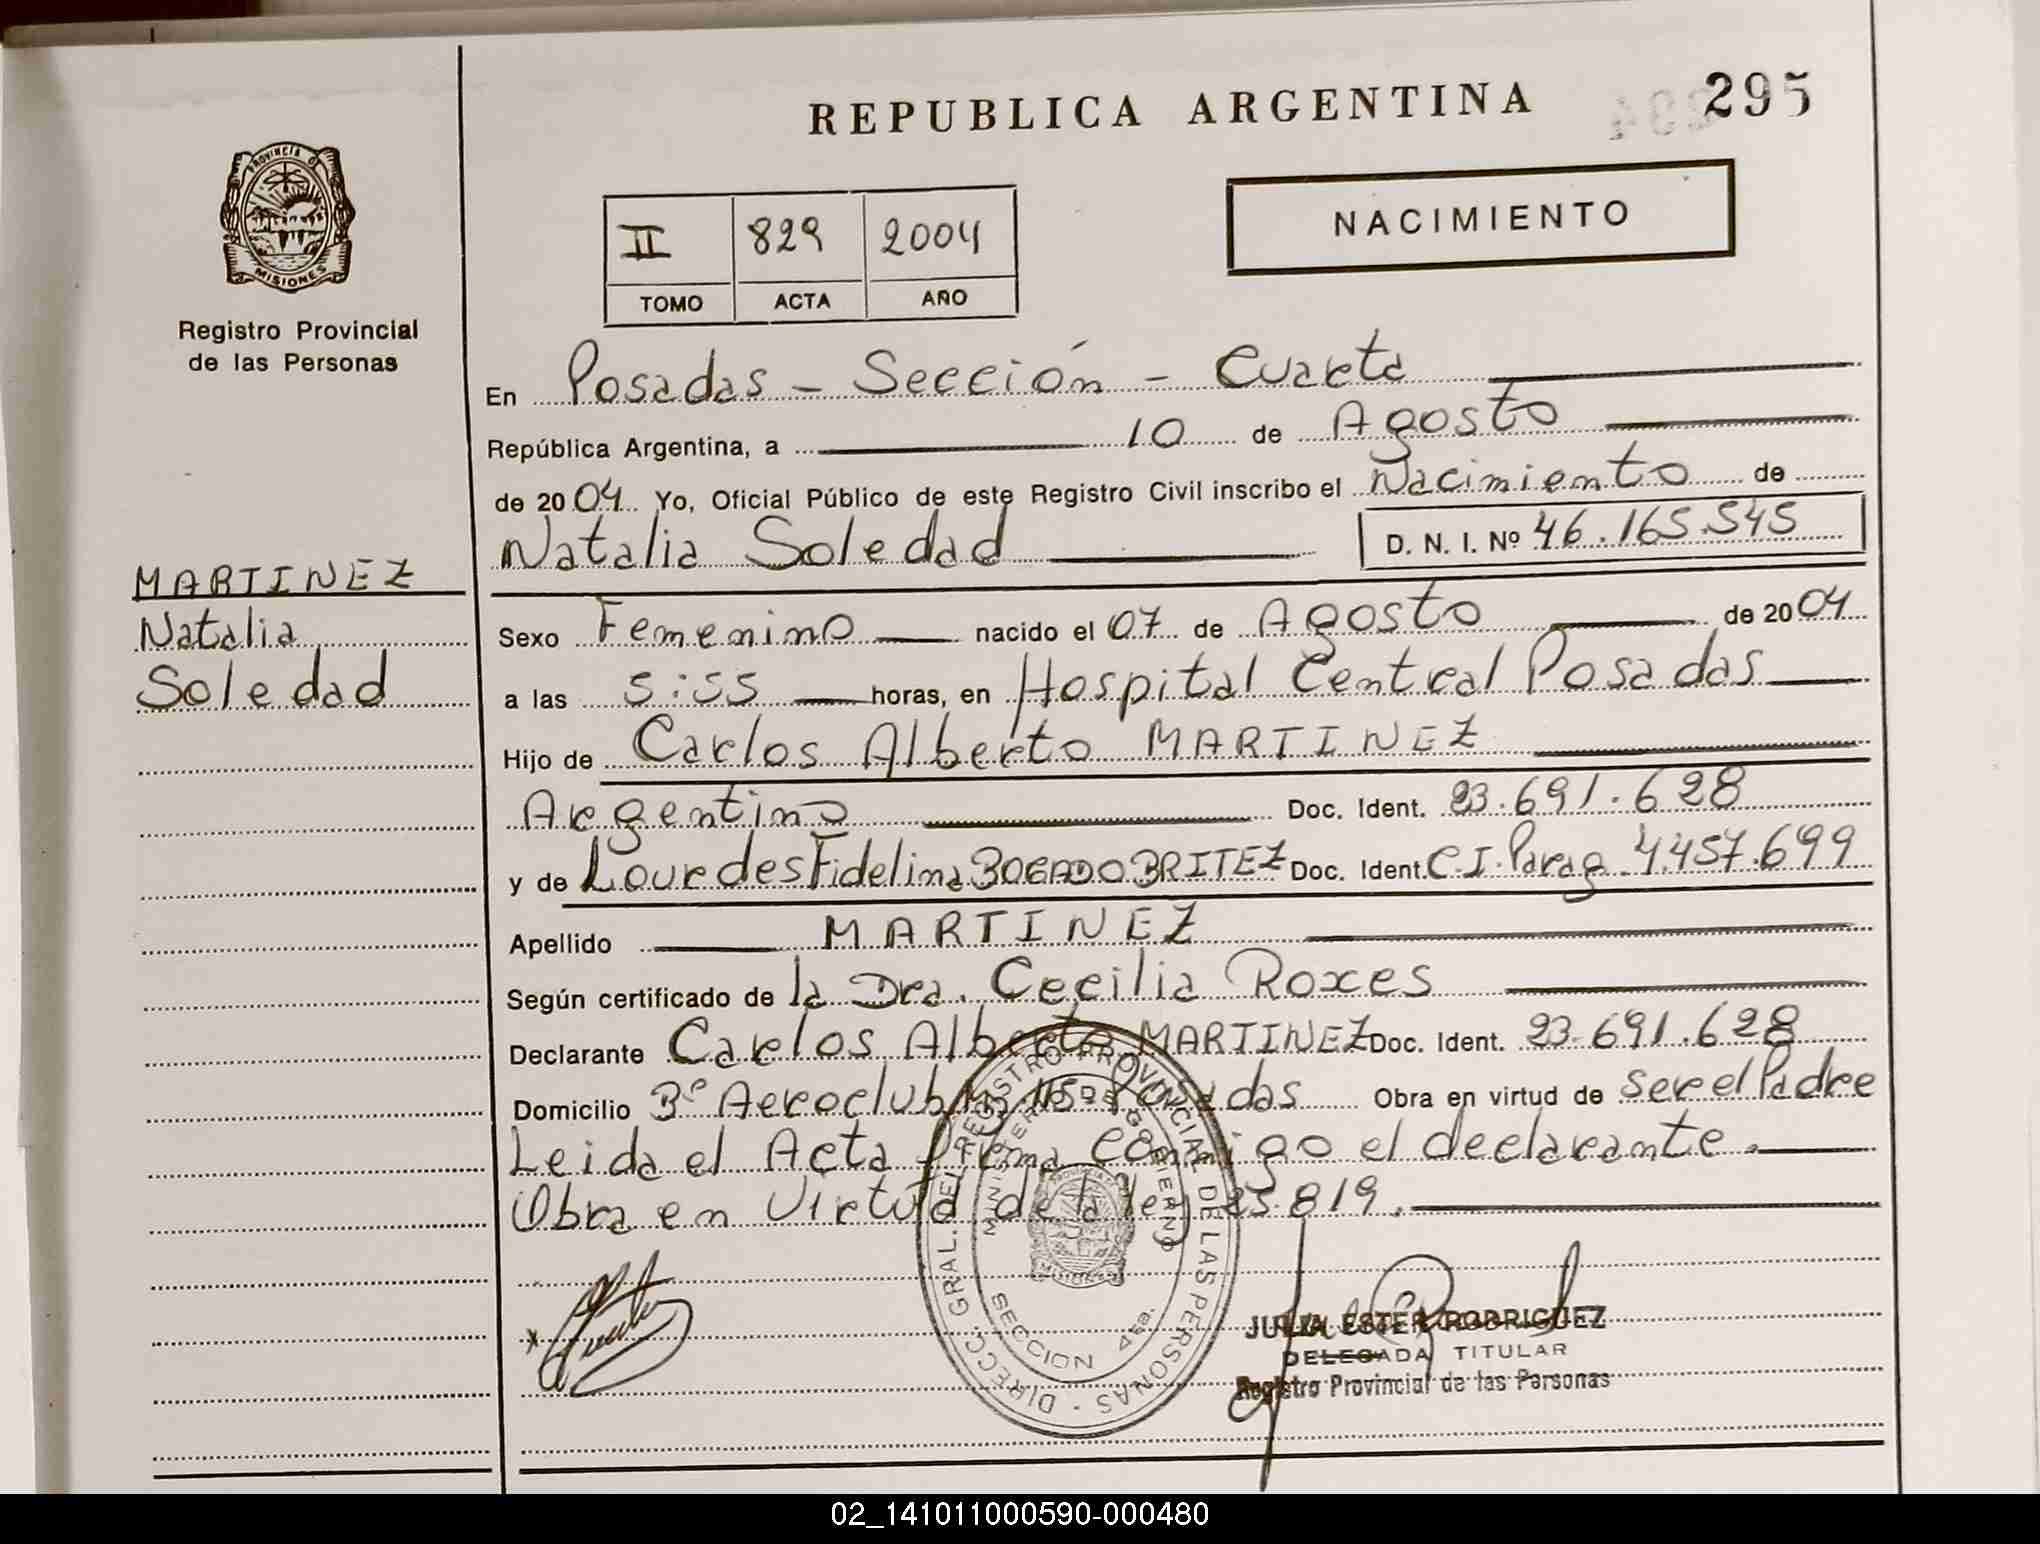 REPUBLICA ARGENTINA
295
PROVINCIA D
MISIONES
Registro Provincial
de las Personas
II 829 2004
TOMO ACTA AÑO
NACIMIENTO
En Posadas - Sección - Cuarta
República Argentina, a 10 de Agosto
de 2004. Yo, Oficial Público de este Registro Civil inscribo el Nacimiento de
Natalia Soledad D. N. I. Nº 46.165.545
MARTINEZ
Natalia
Soledad
Sexo Femenino nacido el 07 de Agosto de 2004
a las 5:55 horas, en Hospital Central Posadas
Hijo de Carlos Alberto MARTINEZ
Argentino Doc. Ident. 23.691.628
y de Lourdes Fidelina BOGADO BRITEZ Doc. Ident. C.I. Parag. 4.457.699
Apellido MARTINEZ
Según certificado de la Dra. Cecilia Roxes
Declarante Carlos Alberto MARTINEZ Doc. Ident. 23.691.628
Domicilio Bº Aeroclub Posadas Obra en virtud de ser el Padre
Leida el Acta firma conmigo el declarante.
Obra en Virtud de la ley 25.819.
DIRECC. GRAL. DEL REGISTRO PROVINCIAL DE LAS PERSONAS
MINISTERIO DE GOBIERNO
SECCION 4ta.
JULIA ESTER RODRIGUEZ
DELEGADA TITULAR
Registro Provincial de las Personas
02_141011000590-000480